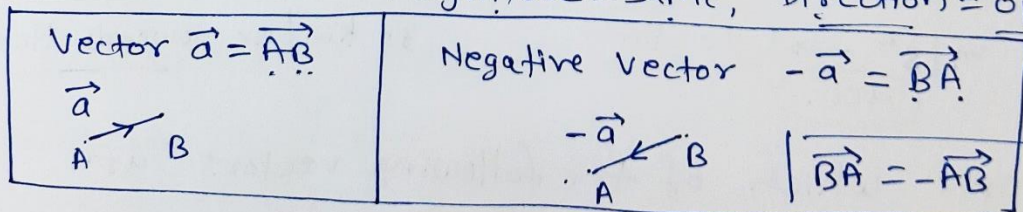 Vector a⃗ = A⃗B⃗
a⃗
A B
Negative vector - a⃗ = B⃗A⃗
- a⃗
B
A
B⃗A⃗ = - A⃗B⃗